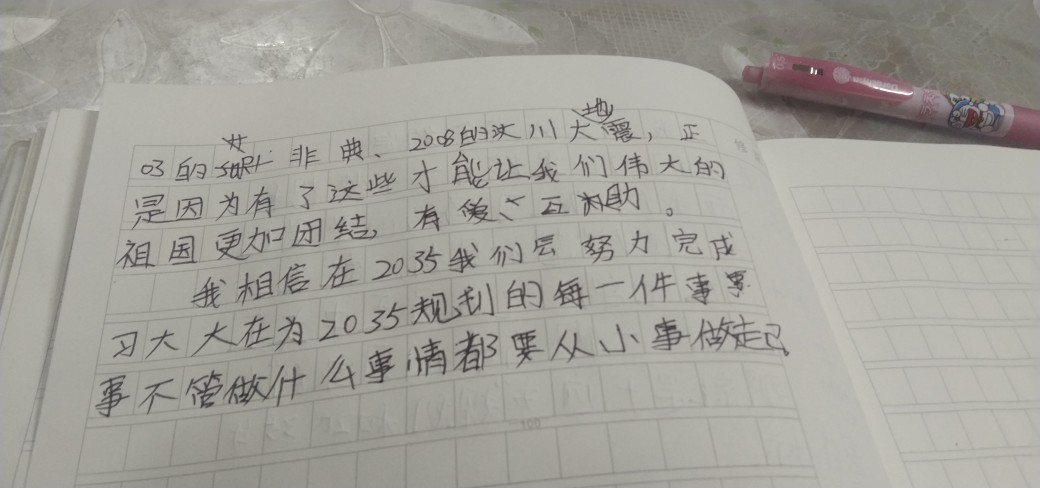 03的 非典、2008的汶川大地震，正
是因为有了这些才能让我们伟大的
祖国更加团结，有爱、互助。
我相信在2035我们会努力完成
习大大在为2035规划的每一件事事
事不管做什么事情都要从小事做起
100